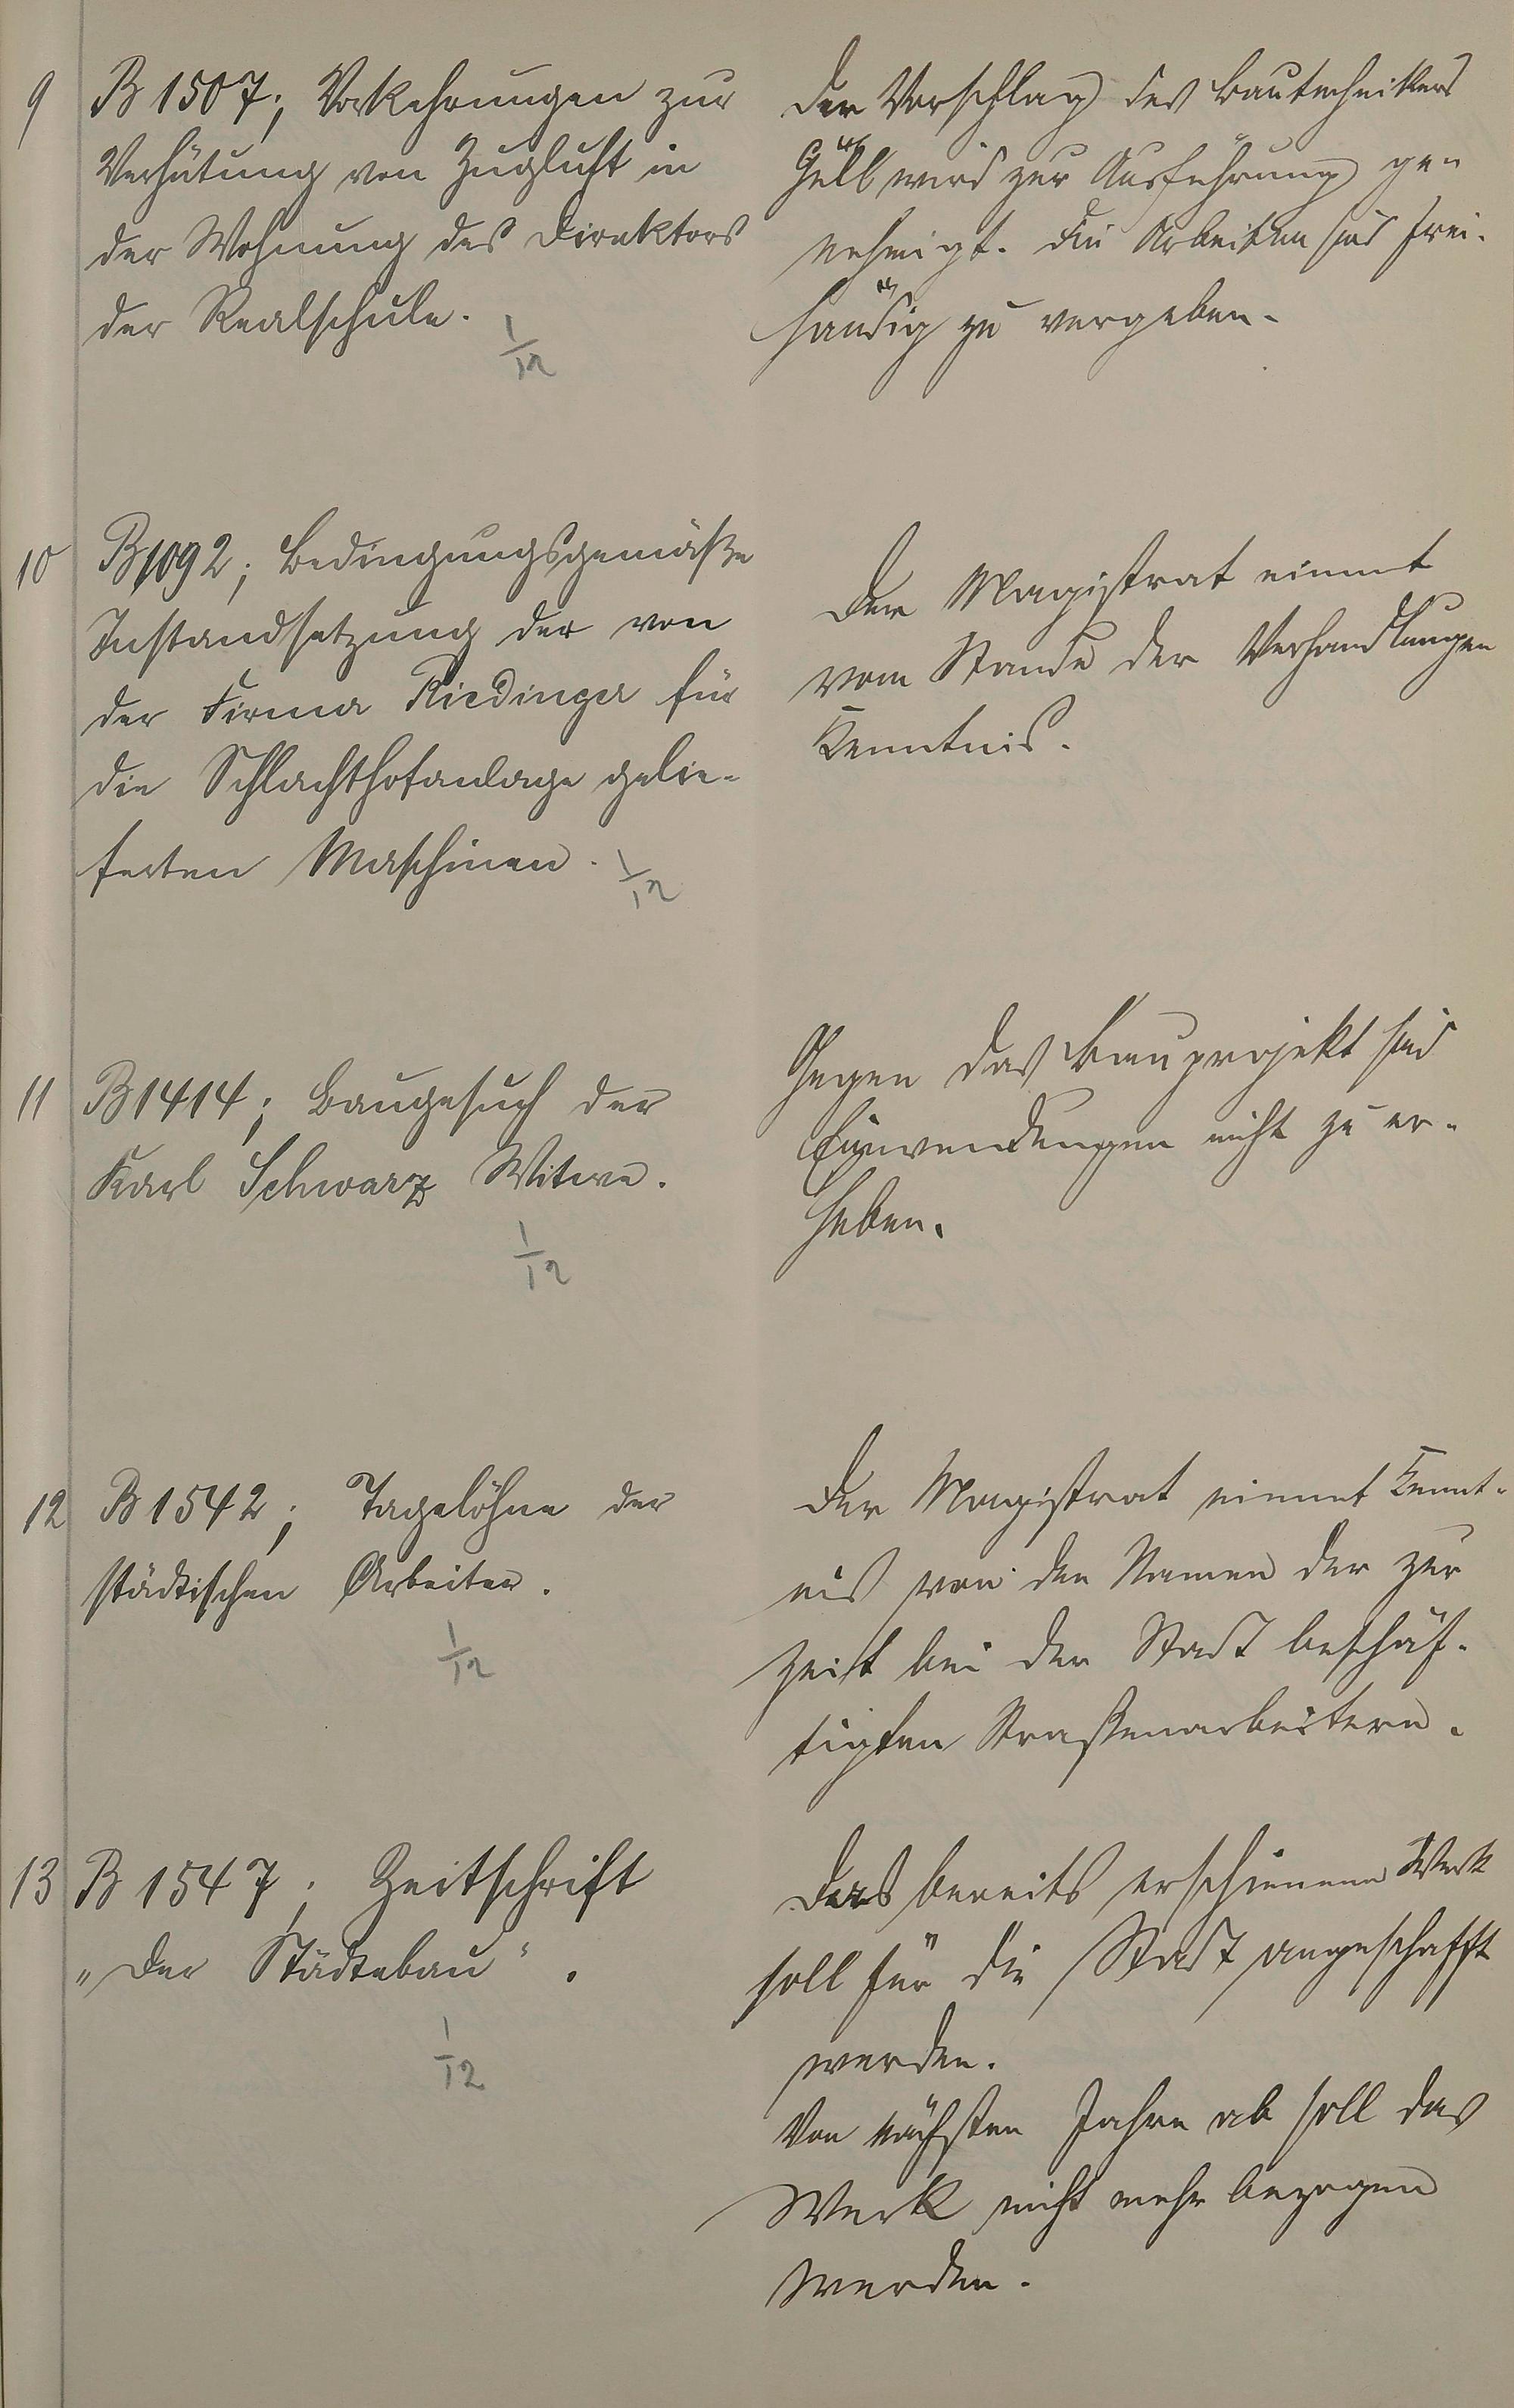 9
B 1507; Vorkehrungen zur
Verhütung von Zugluft in
der Wohnung des Direktors
der Realschule.
1/12
Der Vorschlag des Bautechnikers
wird zur Ausführung ge-
nehmigt. Die Arbeiten sind frei-
händig zu vergeben.
10
B 1092; Bedingungsgemäße
Instandsetzung der von
der Firma Riedinger für
die Schlachthofanlage gelie-
ferten Maschinen.
1/12
Der Magistrat nimmt
vom Stande der Verhandlungen
Kenntnis.
11
B 1414; Baugesuch der
Karl Schwarz Witwe.
1/12
Gegen das Bauprojekt sind
Einwendungen nicht zu er-
heben.
12
B 1542; Tagelöhne der
städtischen Arbeiter.
1/12
Der Magistrat nimmt Kennt-
nis von den Namen der zur
Zeit bei der Stadt beschäf-
tigten Straßenarbeitern.
13
B 1547; Zeitschrift
„Der Städtebau“.
1/12
Das bereits erschienene Werk
soll für die Stadt angeschafft
werden.
Von nächsten Jahre ab soll das
Werk nicht mehr bezogen
werden.